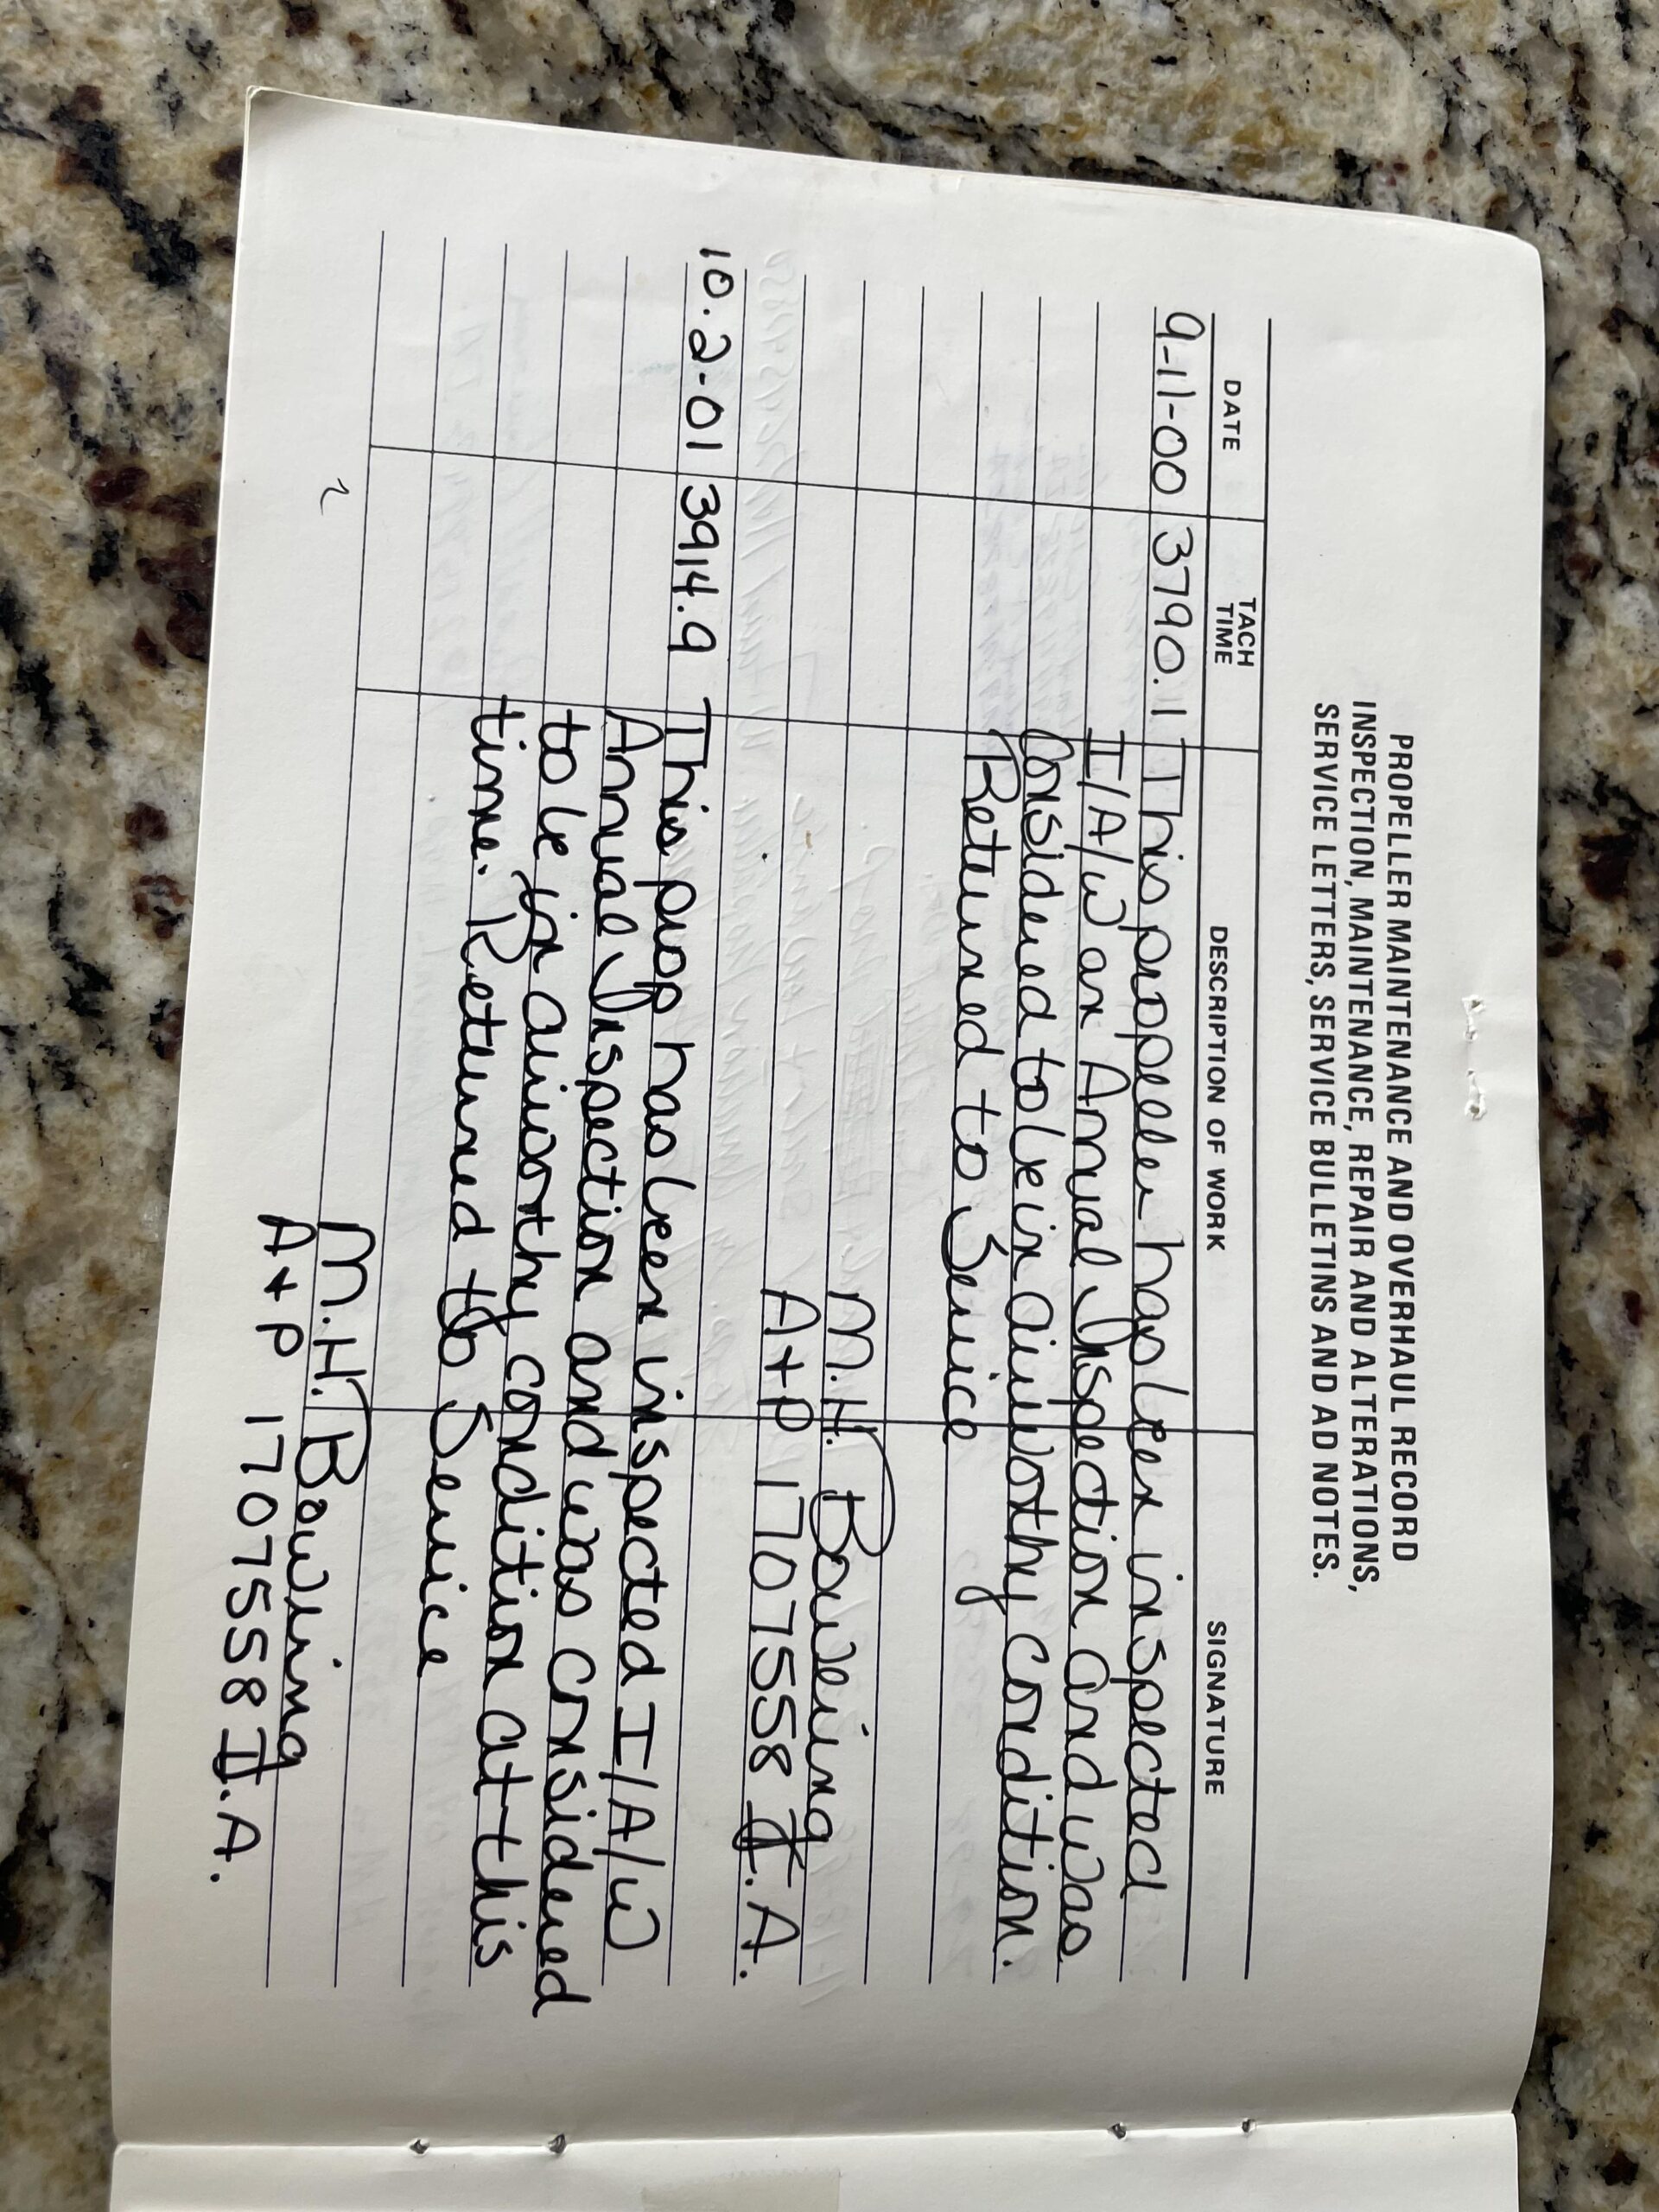 PROPELLER MAINTENANCE AND OVERHAUL RECORD
INSPECTION, MAINTENANCE, REPAIR AND ALTERATIONS,
SERVICE LETTERS, SERVICE BULLETINS AND AD NOTES.
DATE TACH TIME DESCRIPTION OF WORK SIGNATURE
9-11-00 3790.1 This propeller has been inspected
I/A/W an Annual Inspection and was
Considered to be in airworthy condition.
Returned to Service
M.H. Bowling
A+P 1707558 I.A.
10.2-01 3914.9 This prop has been inspected I/A/W
Annual Inspection and was considered
to be in airworthy condition at this
time. Returned to Service
M.H. Bowling
A+P 1707558 I.A.